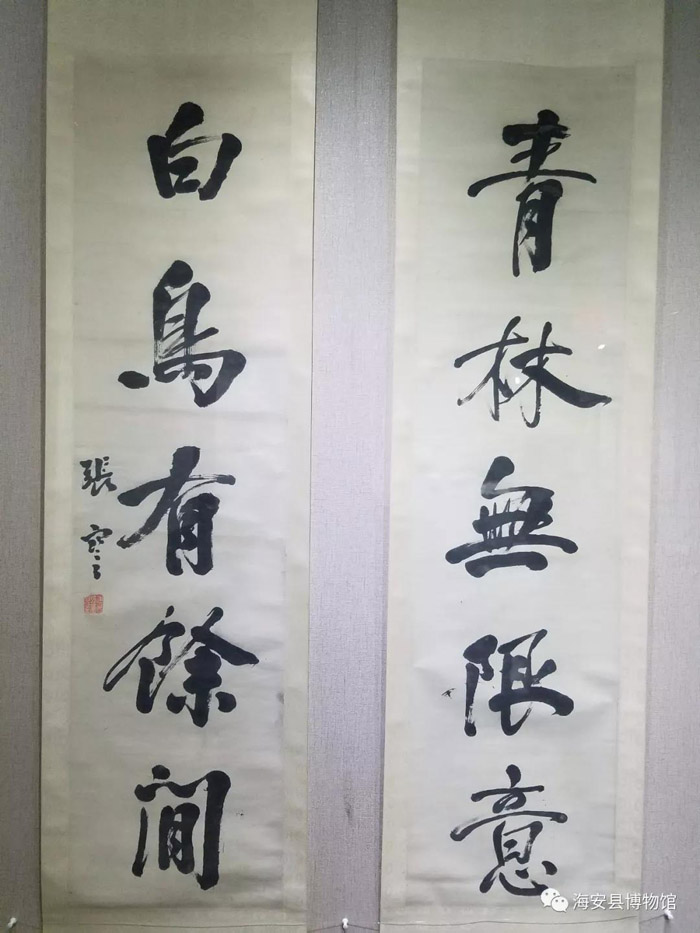 青林無限意
白鳥有餘閒
張謇
海安县博物馆